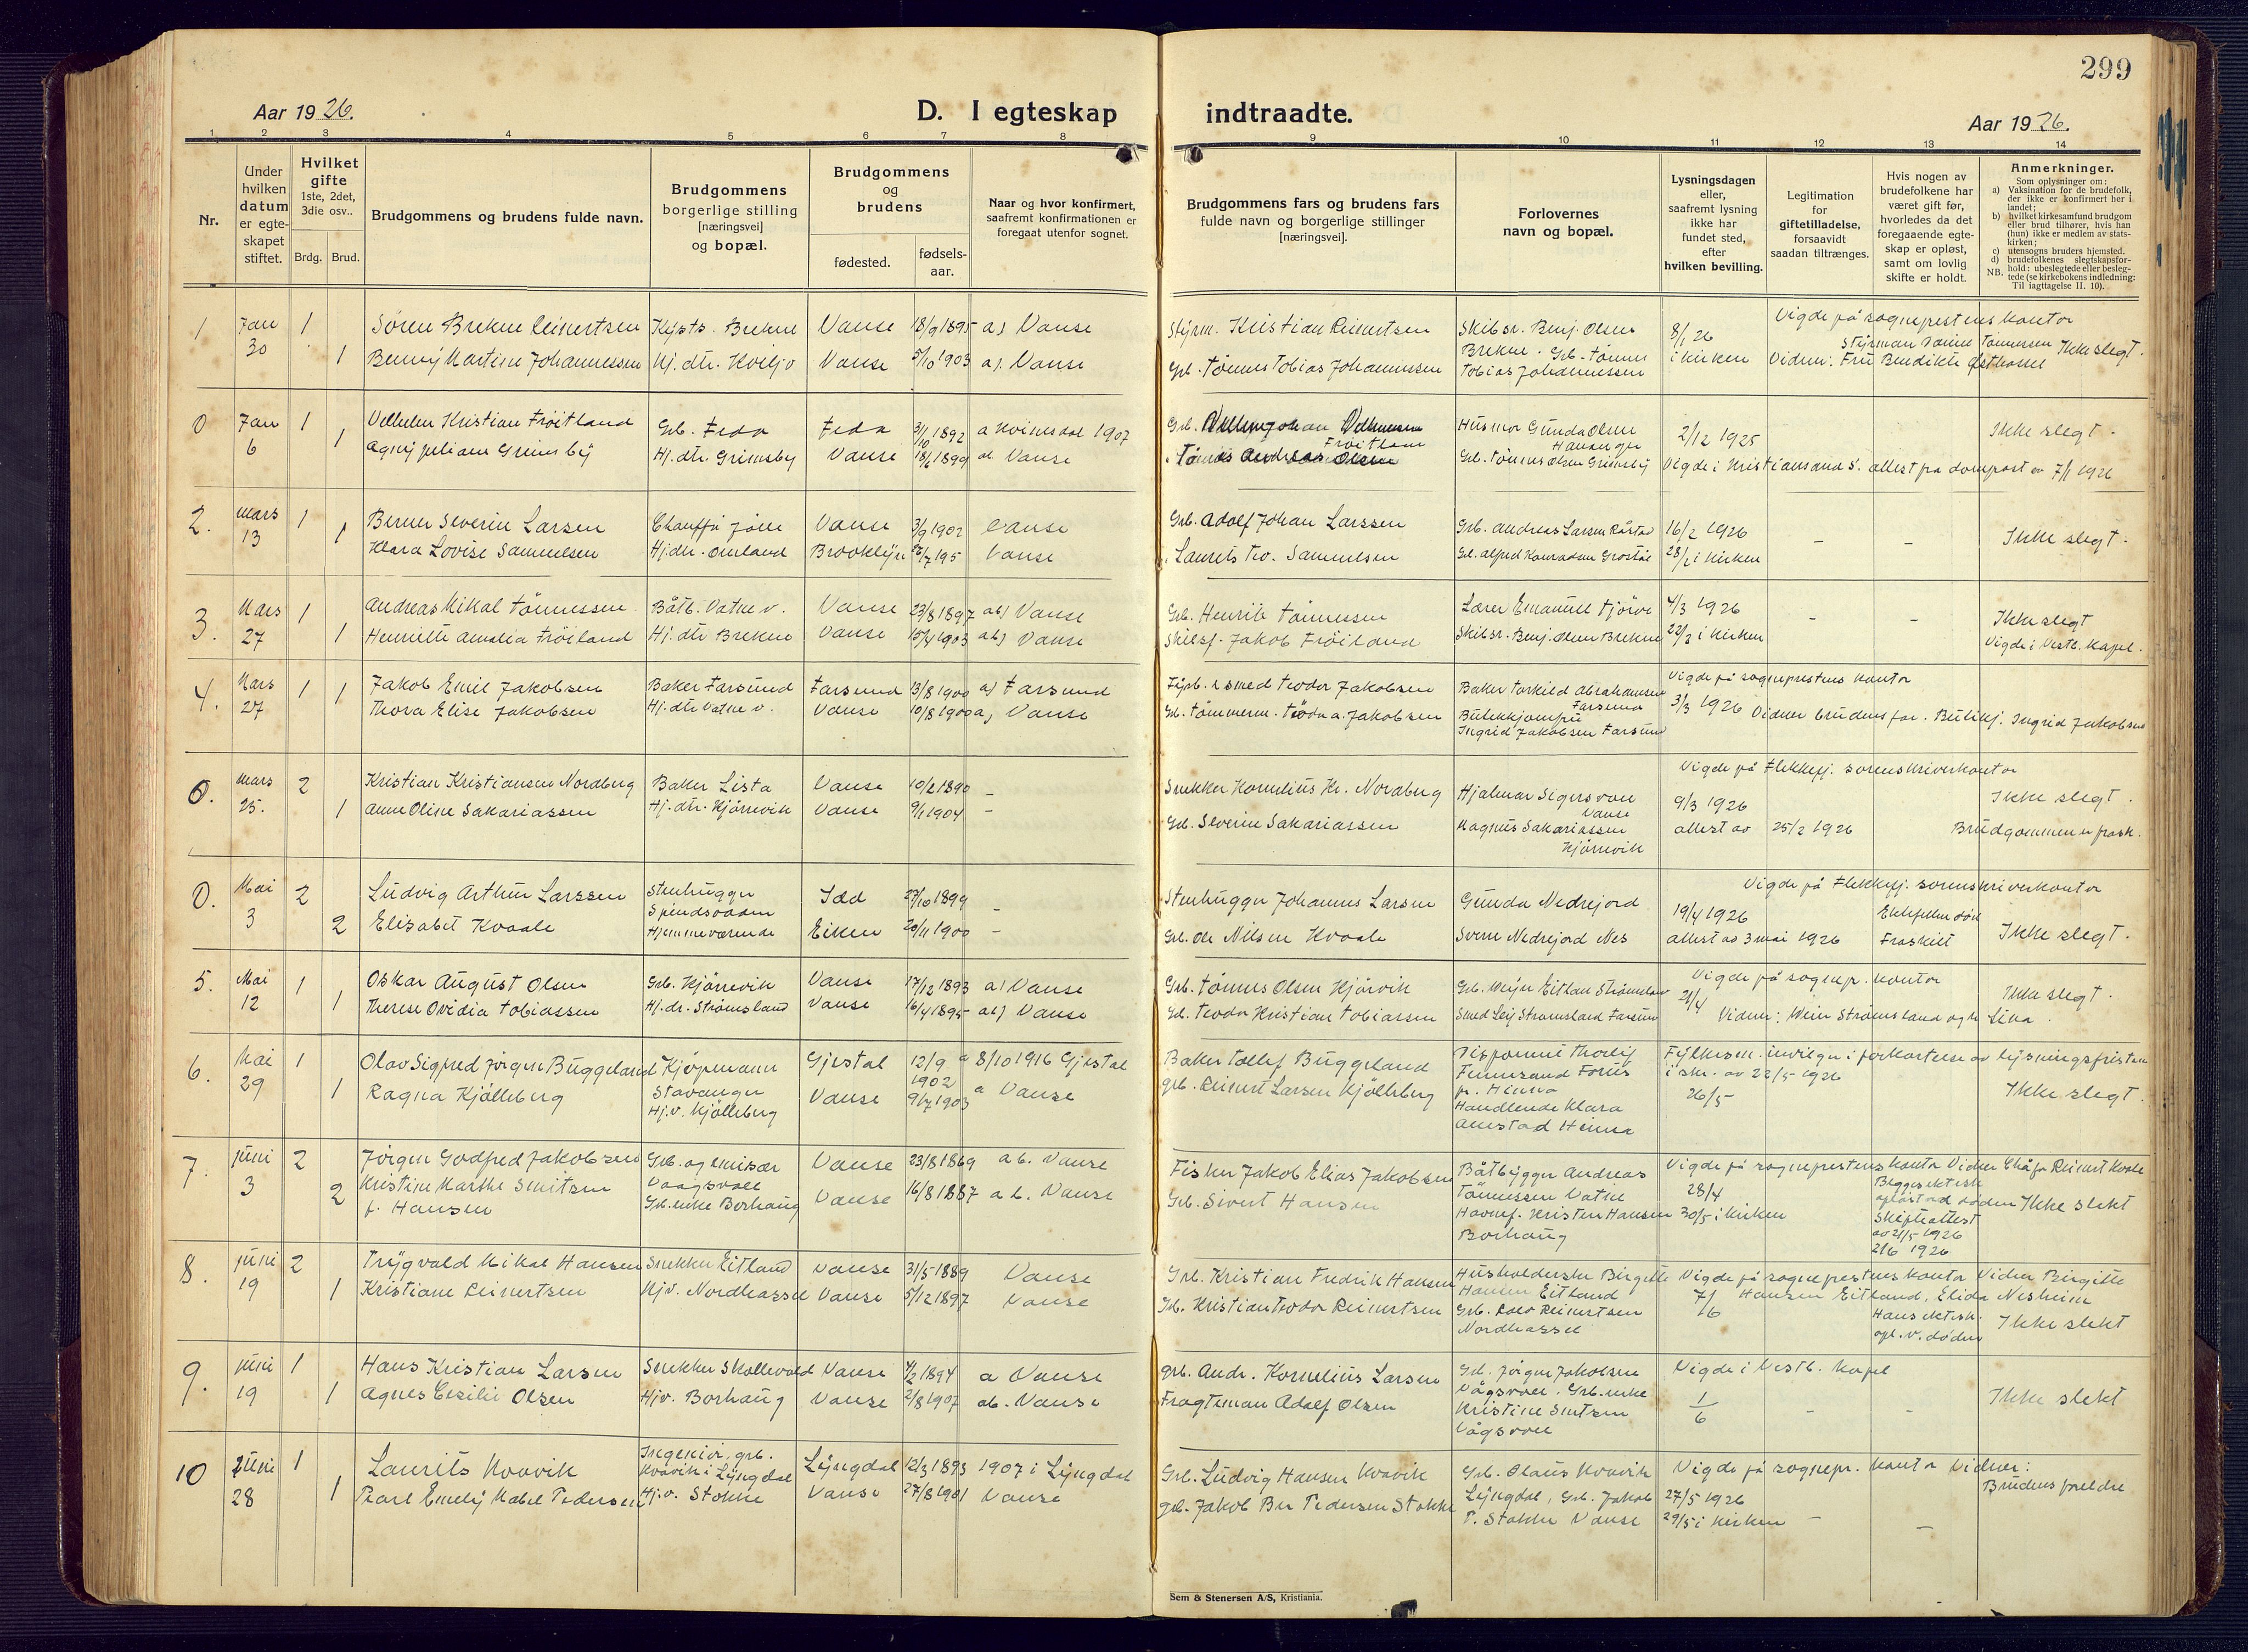 299
Aar 1926.
D. I egteskap indtraadte.
Aar 1926.
1 2 3 4 5 6 7 8 9 10 11 12 13 14
Nr.
Under hvilken datum er egteskapet stiftet.
Hvilket gifte
1ste, 2det, 3die osv..
Brdg. Brud.
Brudgommens og brudens fulde navn.
Brudgommens borgerlige stilling [næringsvei] og bopæl.
Brudgommens og brudens
fødested.
fødsels-aar.
Naar og hvor konfirmert, saafremt konfirmationen er foregaat utenfor sognet.
Brudgommens fars og brudens fars fulde navn og borgerlige stillinger [næringsvei].
Forlovernes navn og bopæl.
Lysningsdagen eller, saafremt lysning ikke har fundet sted, efter hvilken bevilling.
Legitimation for giftetilladelse, forsaavidt saadan tiltrænges.
Hvis nogen av brudefolkene har været gift før, hvorledes da det foregaaende egteskap er opløst, samt om lovlig skifte er holdt.
Anmerkninger.
Som oplysninger om:
a) Vaksination for de brudefolk, der ikke er konfirmert her i landet;
b) hvilket kirkesamfund brudgom eller brud tilhører, hvis han (hun) ikke er medlem av statskirken;
c) utensogns bruders hjemsted.
d) brudefolkenes slegtskapsforhold: ubeslegtede eller beslegtede (se kirkebokens indledning:
NB. Til iagttagelse II. 10).
1 Jan 30 1 Søren Brekne Reinertsen Kystb. Brekne Vanse 18/9 1895 a) Vanse Styrm. Kristian Reinertsen Skibsr. Benj. Olsen 8/1 26 Vigde på sogneprestens kontor
1 Benny Martine Johannessen Hj. dtr. Kviljo Vanse 5/10 1903 a). Vanse Grb. Tønnes Tobias Johannessen Brekne. Grb. Tønnes Tobias Johannessen i kirken Vidner: Styrman Tønnessen Fru Bendikte Østhassel Ikke slegt.
0 Jan 6 1 Vilhelm Kristian Frøitland Grb. Feda Feda 3/10 1892 a Kvinesdal 1907 Grb. Husmor Gunda Olsen 2/12 1925 Ikke slegt.
1 Agny Juliane Grimsby Hj. dtr. Grimsby Vanse 18/2 1899 a Vanse Tønnes Andreas Olsen Grb. Tønnes Olsen Grimsby Vigde i Kristiansand S. attest fra domprost av 7/1 1926
2. mars 13 1 Berner Severin Larsen Chauffør Jølle Vanse 3/9 1902 Vanse Grb. Adolf Johan Larssen Grb. Andreas Larsen Råstad 16/2 1926 - - Ikke slegt.
1 Klara Lovise Samuelsen Hj. dtr. Ourland Brooklyn Vanse Laurits Teo. Samuelsen Grb. Alfred Konradsen 28/2 i kirken
3. Mars 27 1 Andreas Mikal Tønnessen Båtb. Vatne v. Vanse 23/8 1897 ab) Vanse Grb. Henrik Tønnessen Lærer Emanuel Tjørve 4/3 1926 - - Ikke slegt
1 Henriette Amalia Frøiland Hj. dtr Brekne Vanse 15/4 1903 ab) Vanse Skibsf. Jakob Frøiland Skibsr. Benj. Olsen Brekne 22/3 i kirken Vigde i Vestb. kapel.
4. Mars 27 1 1 Jakob Emil Jakobsen Baker Farsund Farsund 13/8 1900 a) Farsund Fyrb. & smed Teodor Jakobsen Baker Torkild Abrahamsen Farsund 3/3 1926 Vigde på sogneprestens kontor
Thora Elise Jakobsen Hj. dtr Vatne v. Vanse 10/8 1900 a) Vanse Grb. tømmerm. Teodor A. Jakobsen Butikkjomfru Ingrid Jakobsen Farsund Vidner brudens far. Butikj. Ingrid Jakobsen
0. mars 25. 2 Kristian Kristiansen Nordberg Baker Lista Vanse 10/2 1890 - Snekker Kornelius Kr. Nordberg Hjalmar Sigersvoll Vanse 9/3 1926 Vigde på Flekkefj. sorenskriverkontor Ikke slegt.
1 Anne Oline Sakariassen Hj. dtr. Kjørrevik Vanse 9/1 1904 - Grb. Severin Sakariassen Magnus Sakariassen Kjørrevik attest av 25/2 1926 Brudgommen er frask.
0. Mai 3 2 Ludvig Arthur Larssen Stenhugger Spindsodden Idd 27/10 1899 - Stenhugger Johannes Larsen Gunda Nedrejord 19/4 1926 Vigde på Flekkefj. sorenskriverkontor Ektefellen død
2 Elisabet Kvaale Hjemmeværende Eiken 20/11 1900 - Grb. Ole Nilsen Kvaale Sverre Nedrejord Nes attest av 3 mai 1926 Fraskilt Ikke slegt.
5. Mai 12 1 Oskar August Olsen Grb. Kjørrevik Vanse 17/12 1893 a) Vanse Grb. Tønnes Olsen Kjørvik 21/4 Vigde på sognepr. kontor Ikke slegt.
1 Therese Ovidia Tobiassen Hj. dr. Strømsland Vanse 16/4 1895 ab) Vanse Grb. Teodor Kristian Tobiassen Smed Leif Strømsland Farsund Vidner: Wein Strømsland og h. Lina.
6. Mai 29 1 Olav Sigfred Jørgen Buggeland Kjøpmann Stavanger Gjestal 12/9 1902 a 8/10 1916 Gjestal Baker Tollef Buggeland Disponent Thorleif Finnesand Forus pr. Hinna Fylkesm. innvilger i forkortelse av lysningsfristen i skr. av 22/5 1926
1 Ragna Kjølleberg Hj.v. Kjølleberg Vanse 9/7 1903 a Vanse grb. Reinert Larsen Kjølleberg Handlende Klara Aunstad Hinna 26/5 Ikke slegt.
7. juni 3 2 Jørgen Godfred Jakobsen Grb. og emisær Vaagsvoll Vanse 23/8 1869 a b. Vanse Fisker Jakob Elias Jakobsen Båtbygger Andreas Tønnessen Vatne 28/4 Vigde på sogneprestens kontor Vidner Reinert Kvale
2 Kristine Marthe Smitsen f. Hansen Grb. enke Borhaug Vanse 16/8 1887 a b. Vanse Grb. Sivert Hansen Havnef. Kristen Hansen Borhaug 30/5 i kirken Begges ektesk. opløst ved døden Skifteattest av 21/5 1926 2/6 1926 Ikke slekt
8. juni 19 2 Trygvald Mikal Hansen Snekker Eitland Vanse 31/5 1889 Vanse Grb. Kristian Fredrik Hansen Husholderske Birgitte Hansen Eitland 7/6 Vigde på sogneprestens kontor Vidner Birgitte Hansen Eitland, Elida Nesheim
1 Kristiane Reinertsen Hjv. Nordhassel Vanse 5/12 1897 Vanse Grb. Kristian Teodor Reinertsen Grb. Reinertsen Nordhassel Hans ektesk. opl. v. døden Ikke slekt
9. juni 19 1 Hans Kristian Larsen Snekker Skollevold Vanse 4/2 1894 a Vanse grb. Andr. Kornelius Larsen Grb. Jørgen Jakobsen Vågsvoll, Grb. enke 1/6 Vigde i Vestb. kapel
1 Agnes Cesilie Olsen Hjv. Borhaug Vanse 2/8 1907 ab. Vanse Fragteman Adolf Olsen Kristine Smitsen Vågsvoll - - Ikke slekt
10 Juni 28 1 Laurits Kvavik Ingeniør, grb. Kvavik i Lyngdal Lyngdal 12/3 1893 1907 i Lyngdal Grb. Ludvig Hansen Kvavik Grb. Olaus Kvavik Lyngdal, Grb. Jakob P. Stokke Vanse 27/5 1926 Vigde på sognepr. kontor Vidner: Brudens foreldre
1 Pearl Emely Mabel Pedersen Hj.v. Stokke Vanse 27/8 1901 Vanse grb. Jakob Ber Pedersen Stokke 29/5 i kirken - -
Sem & Stenersen A/S, Kristiania.